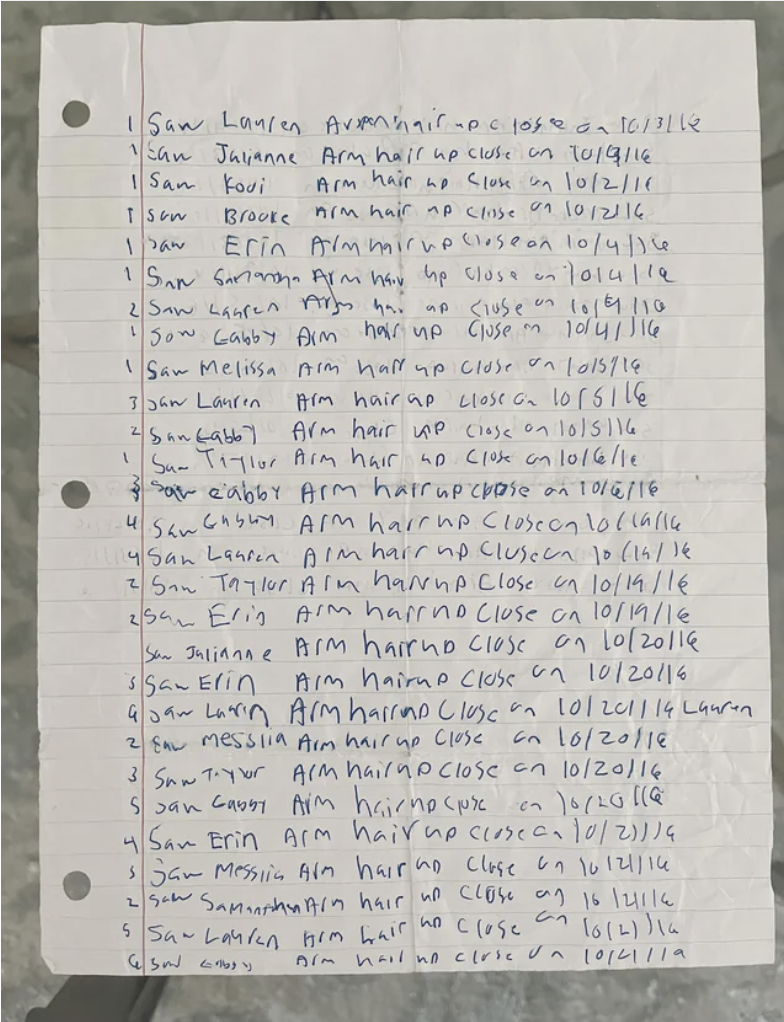 1 Saw Lauren Arm hair up close on 10/3/16
1 Saw Julianne Arm hair up close on 10/3/16
1 Saw Kovi Arm hair up close on 10/2/16
1 Saw Brooke Arm hair up close on 10/2/16
1 Saw Erin Arm hair up close on 10/4/16
1 Saw Samantha Arm hair up close on 10/4/16
2 Saw Lauren Arm hair up close on 10/4/16
1 Saw Gabby Arm hair up close on 10/4/16
1 Saw Melissa Arm hair up close on 10/5/16
3 Saw Lauren Arm hair up close on 10/5/16
2 Saw Gabby Arm hair up close on 10/5/16
1 Saw Taylor Arm hair up close on 10/6/16
3 Saw Gabby Arm hair up close on 10/6/16
4 Saw Gabby Arm hair up close on 10/19/16
4 Saw Lauren Arm hair up close on 10/19/16
2 Saw Taylor Arm hair up close on 10/19/16
2 Saw Erin Arm hair up close on 10/19/16
Saw Julianne Arm hair up close on 10/20/16
3 Saw Erin Arm hair up close on 10/20/16
Saw Laurin Arm hair up close on 10/20/16 Lauren
2 Saw Messlia Arm hair up close on 10/20/16
3 Saw Taylor Arm hair up close on 10/20/16
5 Saw Gabby Arm hair up close on 10/20/16
4 Saw Erin Arm hair up close on 10/21/16
3 Saw Messiia Arm hair up close on 10/21/16
2 Saw Samantha Arm hair up close on 10/21/16
5 Saw Lauren Arm hair up close on 10/21/16
6 Saw Gabby Arm hair up close on 10/21/16